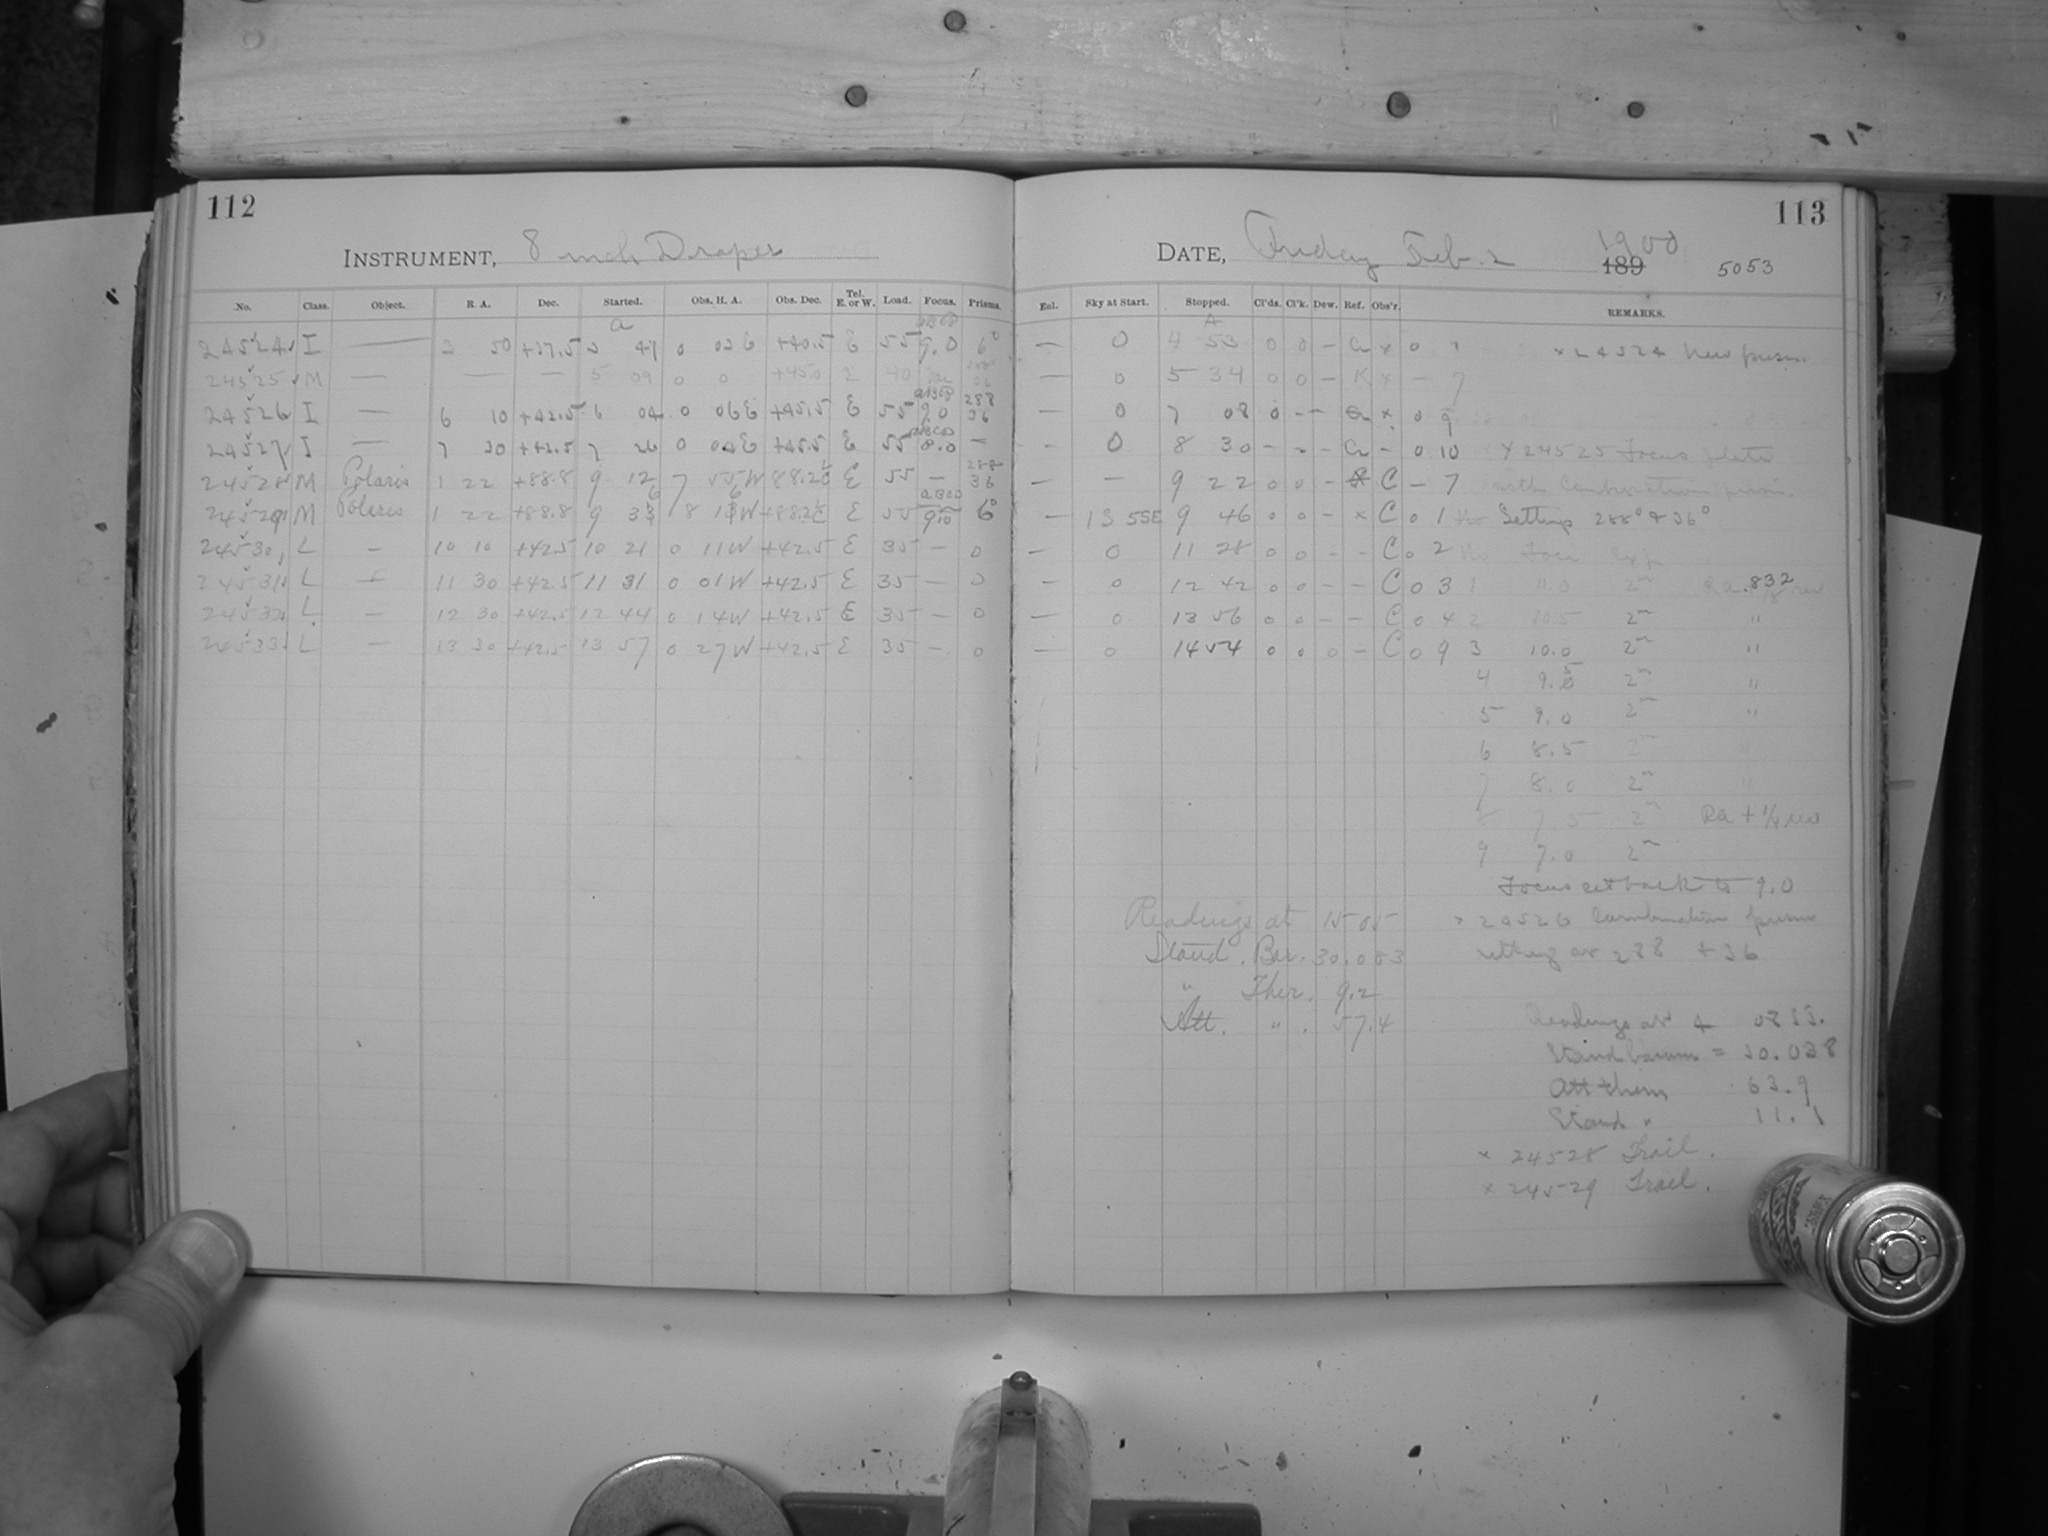 112
INSTRUMENT, 8 inch Draper
No. Class. Object. R. A. Dec. Started. Obs. H. A. Obs. Dec. Tel. E. or W. Load. Focus. Prisms.
24524 I — 50 +37.5 47 0 02 E +40.5 E 55 9.0 6°
24525 M — — — 5 09 0 0 +45.0 E 40
24526 I — 6 10 +42.5 6 04 0 06 E +45.5 E 55 ABCD 9.0 288 36
24527 I — 7 30 +42.5 7 26 0 04 E +45.5 E 55 ABCD 8.0 —
24528 M Polaris 1 22 +88.8 9 12 7 55 W 88.2 E 55 — 288 36
24529 M Polaris 1 22 +88.8 9 36 8 W +88.2 E 55 ABCD 9.0 6°
24530 L — 10 10 +42.5 10 21 0 11 W +42.5 E 35 — 0
24531 L — 11 30 +42.5 11 31 0 01 W +42.5 E 35 — 0
24532 L — 12 30 +42.5 12 44 0 14 W +42.5 E 35 — 0
24533 L — 13 30 +42.5 13 57 0 27 W +42.5 E 35 — 0
113
DATE, Friday Feb. 2 1900 189 5053
Eul. Sky at Start. Stopped. Cl'ds. Cl'k. Dew. Ref. Obs'r. REMARKS.
— 0 4 53 0 0 — × 0 × 24524 New prism.
— 0 5 34 0 0 — K × — 7
— 0 7 08 0 — — × 0 9
— 0 8 30 — — — — 0 10 × 24525 Focus plate
— — 9 22 0 0 — C — 7 with Combination prism.
— 1S 5SE 9 46 0 0 — × C 0 1 Setting 288° & 36°
— 0 11 28 0 0 — — C 0 2 No Foci Exp
— 0 12 42 0 0 — — C 0 3 1 11.0 2m Ra .832 rev
— 0 13 56 0 0 — — C 0 4 2 10.5 2m "
— 0 14 54 0 0 0 — C 0 9 3 10.0 2m "
4 9.5 2m "
5 9.0 2m "
6 8.5 2m "
7 8.0 2m "
8 7.5 2m Ra + 1/4 rev
9 7.0 2m
Focus set back to 9.0
Readings at 15 05
Stand. Bar. 30.083
" Ther. 9.2
Att. " . 57.4
× 24526 Combination prism
setting at 288 + 36
Readings at 4 08
Stand barom = 30.038
Att therm 63.9
Stand " 11.1
× 24528 Trail.
× 24529 Trail.